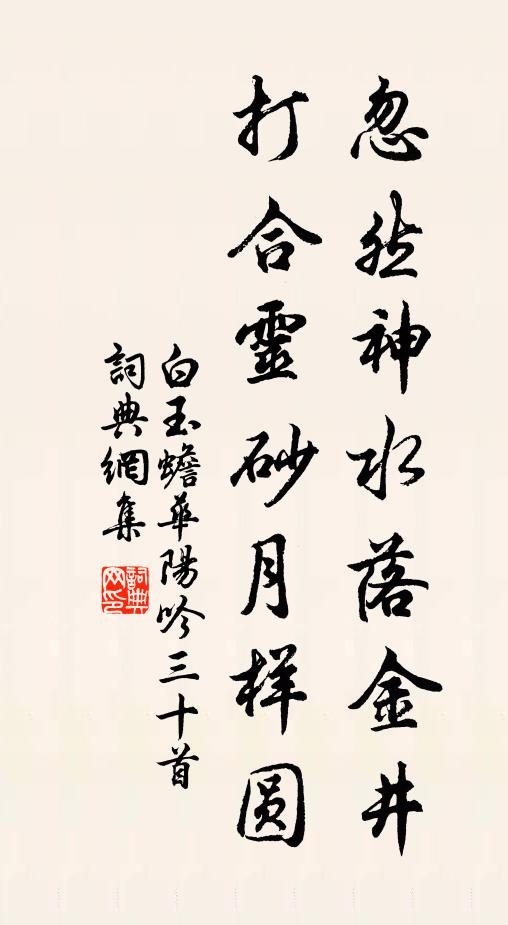 忽然神水落金井
打合靈砂月样圆
白玉蟾華陽吟三十首
詞典網集
詞典网印